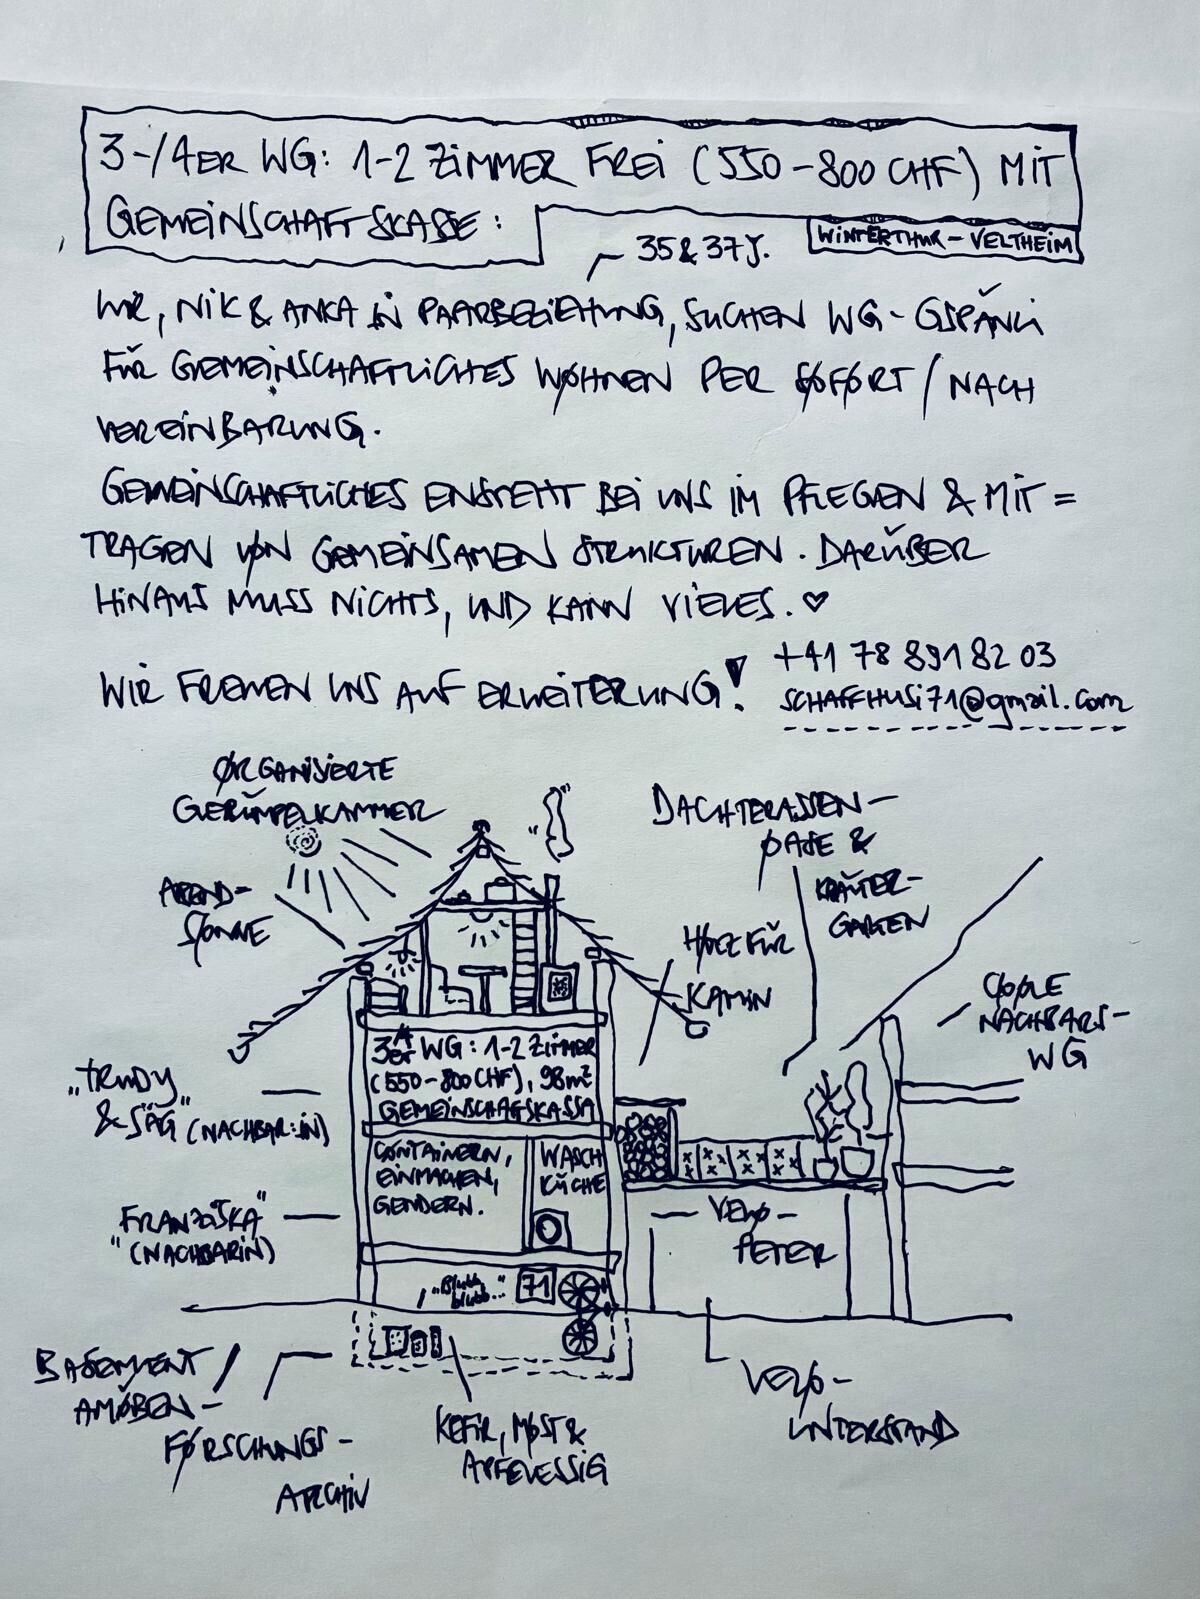 3-/4ER WG: 1-2 ZIMMER FREI (550-800 CHF) MIT
GEMEINSCHAFTSKASSE:
WINTERTHUR-VELTHEIM
35 & 37 J.
WIR, NIK & ANKA IN PAARBEZIEHUNG, SUCHEN WG-GSPÄNLI
FÜR GEMEINSCHAFTLICHES WOHNEN PER SOFORT / NACH
VEREINBARUNG.
GEMEINSCHAFTLICHES ENSTEHT BEI UNS IM PFLEGEN & MIT=
TRAGEN VON GEMEINSAMEN STRUKTUREN. DARÜBER
HINAUS MUSS NICHTS, UND KANN VIELES. ♡
WIR FREUEN UNS AUF ERWEITERUNG!
+41 78 891 82 03
SCHAFFHUSI71@gmail.com
ORGANISIERTE
GERÜMPELKAMMER
ABEND=
SONNE
DACHTERASSEN-
OASE &
KRÄUTER-
GARTEN
HOLZ FÜR
KAMIN
COOLE
NACHBARS-
WG
3/4er WG: 1-2 ZIMMER
(550-800 CHF), 98m²
GEMEINSCHAFSKASSA
"TRUDY"
& SÄG (NACHBAR:IN)
CONTAINERN,
EINMACHEN,
GENDERN.
WASCH
KÜCHE
FRANZISKA"
"(NACHBARIN)
VELO-
PETER
"Blubb
blubb..."
71
BASEMENT
AMÖBEN-
FORSCHUNGS-
ARCHIV
KEFIR, MOST &
APFELESSIG
VELO-
UNTERSTAND